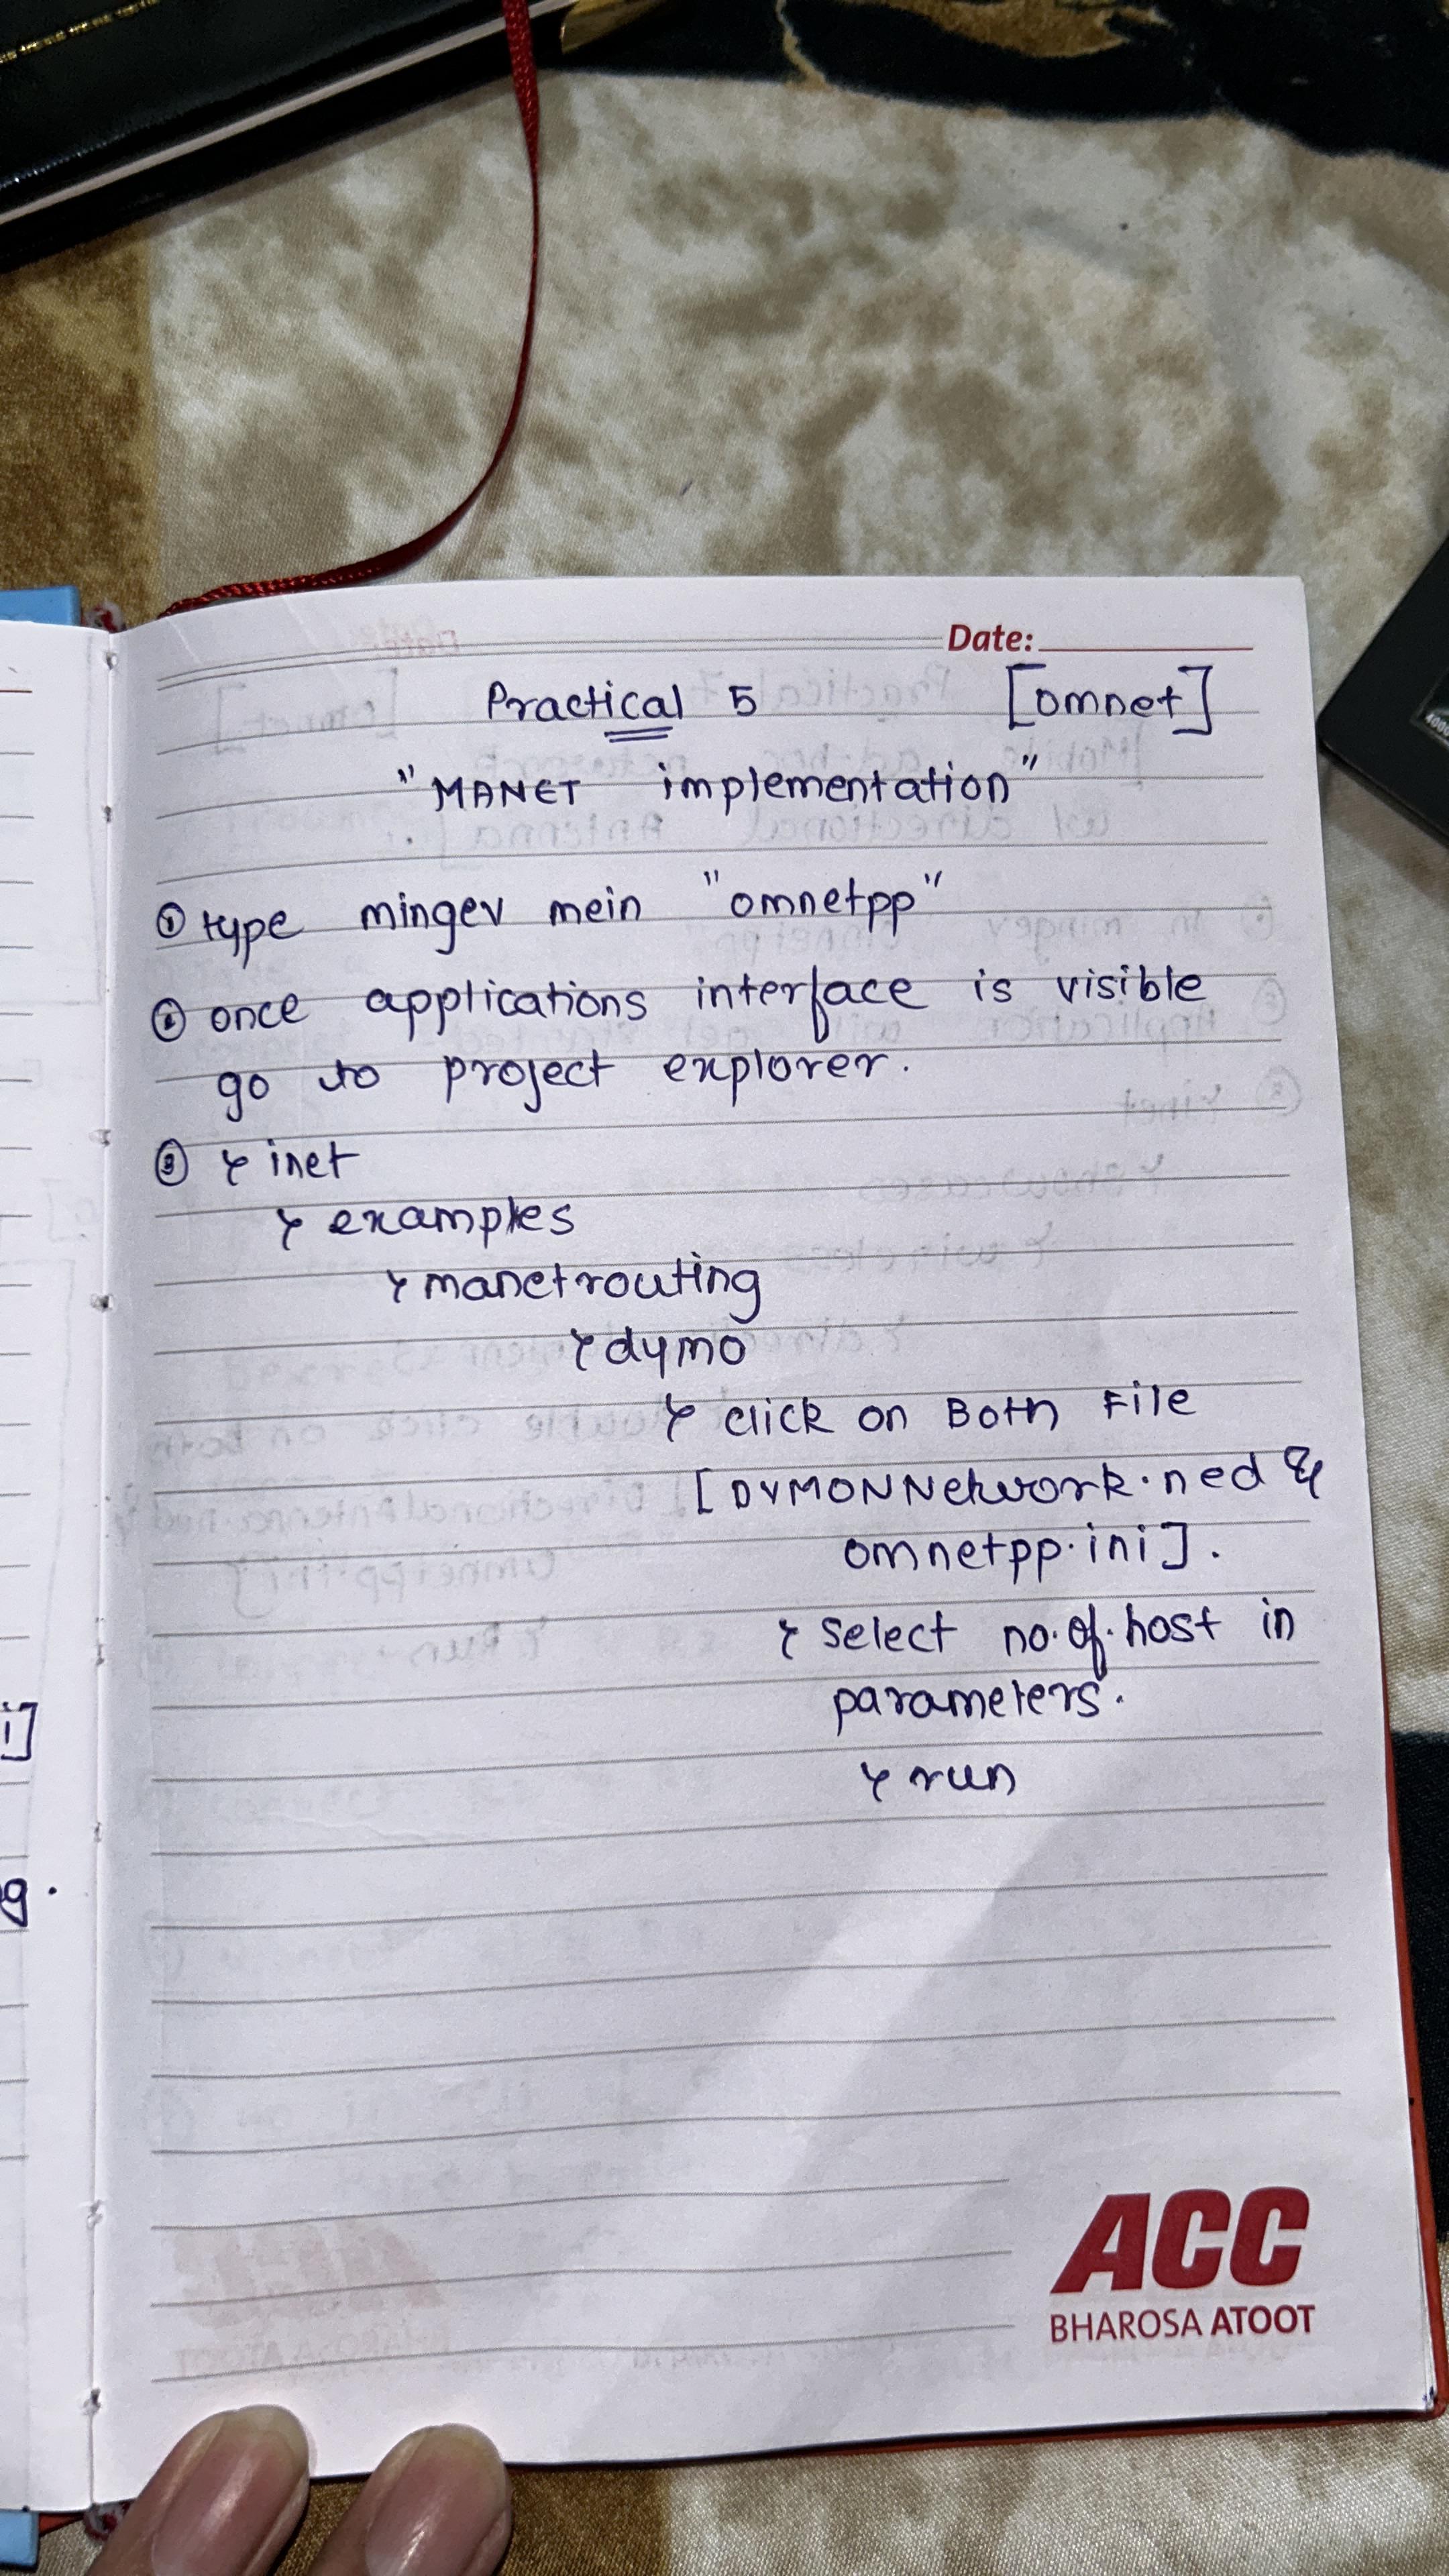 Date:
Practical 5 [omnet]
"MANET implementation"
① type mingev mein "omnetpp"
② once applications interface is visible
go to project explorer.
③ inet
examples
manetrouting
dymo
click on Both File
[DYMONNetwork.ned &
omnetpp.ini].
Select no.of.host in
parameters.
run
i]
g.
ACC
BHAROSA ATOOT